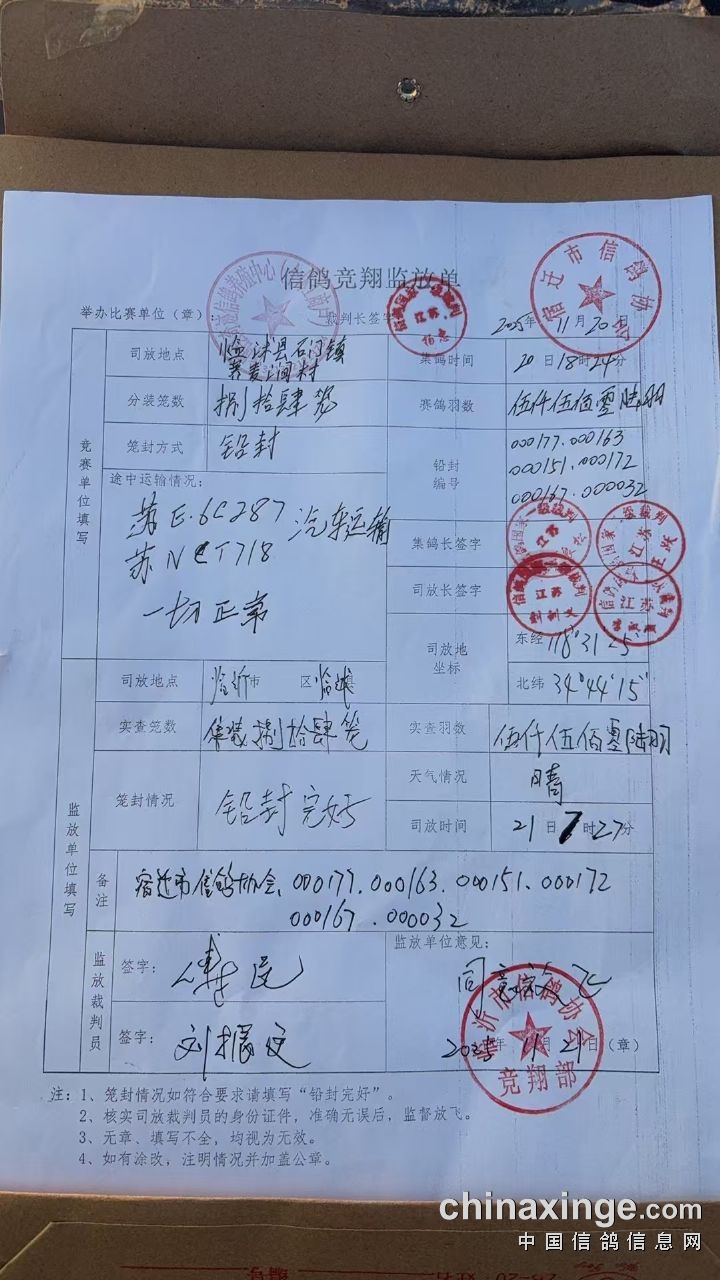 信鸽竞翔监放单
举办比赛单位（章）：
裁判长签字
2025年11月20日
宿迁市信鸽协会
江苏
信息
竞赛单位填写
司放地点
临沭县石门镇
集鸽时间
20日18时24分
分装笼数
捌拾肆笼
赛鸽羽数
伍仟伍佰零陆羽
笼封方式
铅封
铅封编号
000177.000163
000151.000172
000167.000032
途中运输情况：
苏E.6C287 汽车运输
苏N
一切正常
集鸽长签字
江苏
江苏
司放长签字
江苏
江苏
司放地坐标
东经118°31′25″
北纬34°44′15″
监放单位填写
司放地点
临沂市 区
实查笼数
集装捌拾肆笼
实查羽数
伍仟伍佰零陆羽
笼封情况
铅封完好
天气情况
晴
司放时间
21日7时27分
备注
宿迁市信鸽协会、000177.000163.000151.000172
000167.000032
监放裁判员
签字：
签字：刘振
监放单位意见：
同意放飞
临沂市信鸽协会
竞翔部
2025年11月21日（章）
注：1、笼封情况如符合要求请填写“铅封完好”。
2、核实司放裁判员的身份证件，准确无误后，监督放飞。
3、无章、填写不全，均视为无效。
4、如有涂改，注明情况并加盖公章。
chinaxinge.com
中国信鸽信息网